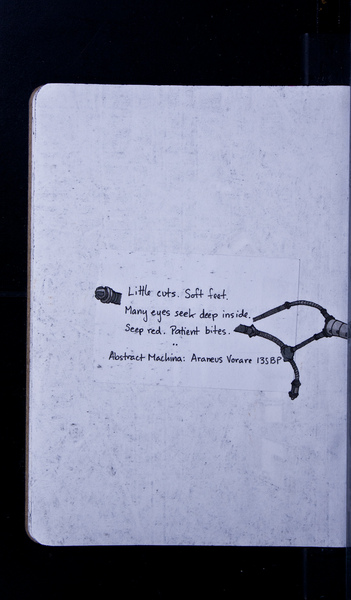 Little cuts. Soft feet.
Many eyes seek deep inside.
Seep red. Patient bites.
..
Abstract Machina: Araneus Vorare 135BP